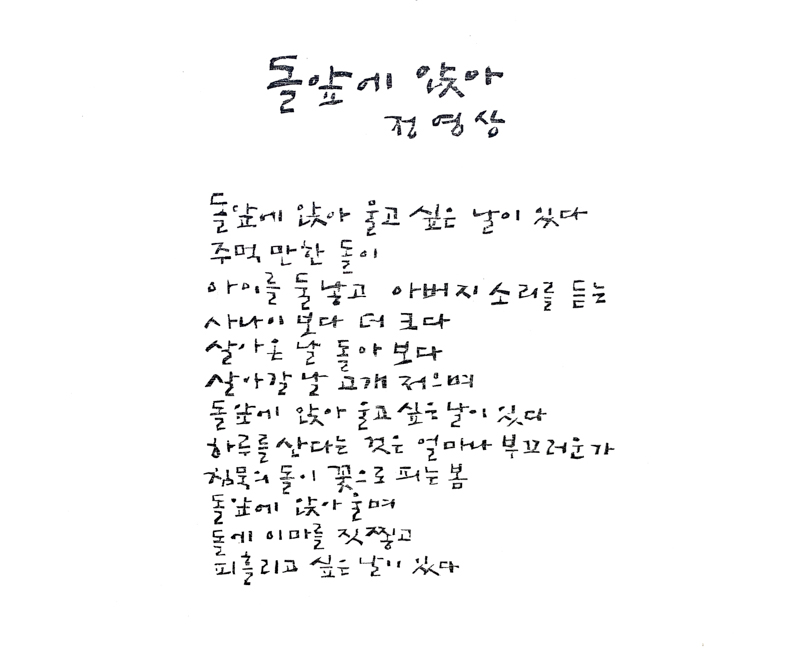 돌앞에 앉아
정영상
돌앞에 앉아 울고 싶은 날이 있다
주먹 만한 돌이
아이를 둘 낳고 아버지 소리를 듣는
사나이 보다 더 크다
살아온 날 돌아 보다
살아갈 날 고개 저으며
돌앞에 앉아 울고 싶은 날이 있다
하루를 산다는 것은 얼마나 부끄러운가
침묵의 돌이 꽃으로 피는 봄
돌앞에 앉아 울며
돌에 이마를 짓찧고
피흘리고 싶은 날이 있다